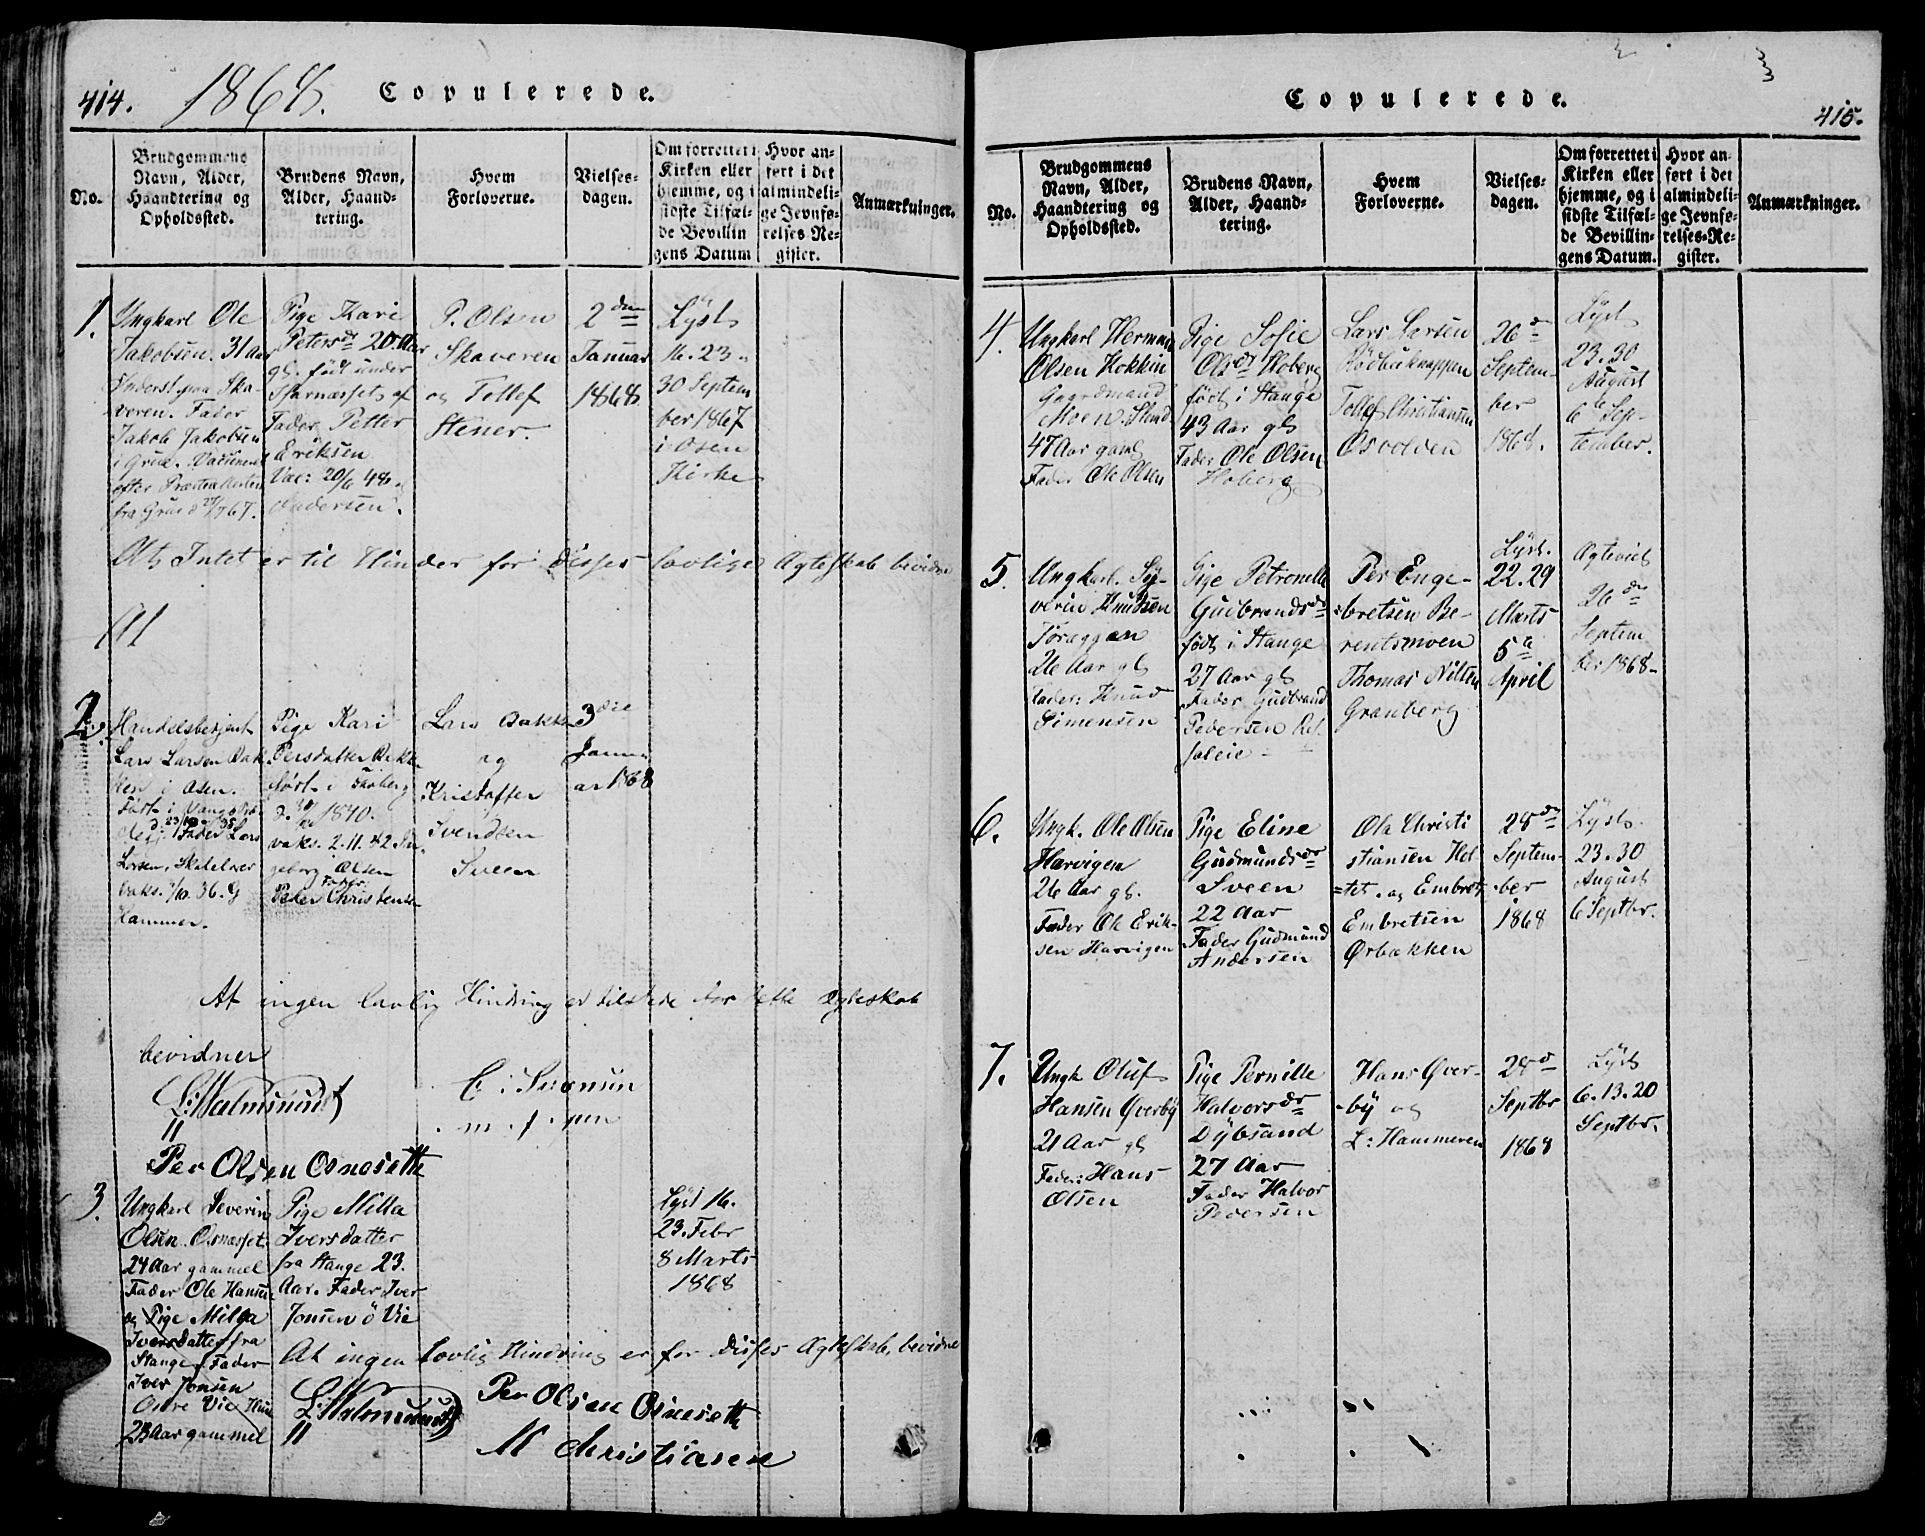 414.
1868.
Copulerede.
No.
Brudgommens
Navn, Alder,
Haandtering og
Opholdssted.
Brudens Navn,
Alder, Haand-
tering.
Hvem
Forloverne.
Vielses-
dagen.
Om forrettet i
Kirken eller
hjemme, og i
sidste Tilfæl-
de Bevillin
gens Datum
Hvor an-
ført i det
almindeli-
ge Jevnfø-
relses-Re-
gister.
Anmærkninger.
1.
Ungkarl Ole
Jakobsen. 31 Aar
Inderst paa Ska-
veren. Fader
Jakob Jakobsen
i Grue.
fra Grue
Pige Kari
Petersdr 20 Aar
gl. født under
af
Fader Petter
Eriksen
Vac: 20/6 48.
Andersen.
P. Olsen
Skaveren
og Tollef
Stener.
2den
Januar
1868
Lyst
16. 23.
30 Septem
ber 1867
i Osen
Kirke
At Intet er til Hinder for disses lovlige Ægteskab bevidne
2.
Handelsbetjent
Lars Larsen Bak-
ken i Osen.
Født i
Fader Lars
Larsen,
vaks. 36. G
Hammer.
Pige Kari
Persdatter
født i
1840.
vaks. 2.11.42
Olsen
Fader
Peder Christens
Lars Bakken
og
Kristoffer
Svendsen
Sveen
3die
Janu
ar 1868
At ingen lovlig Hindring er tilstede for dette Ægteskab
bevidner
L: Malmsundt
m. f. pen
Per Olsen Osnesette
3.
Ungkarl Severin
Olsen Osnæsset
24 Aar gammel
Fader Ole Hansen
og Pige Milla
Iversdatter fra
Stange Fader
Iver Jonsen
Østre Vie
23 Aar gammel
Pige Milla
Iversdatter
fra Stange 23.
Aar. Fader Iver
Jonsen ö Vie
Lyst 16.
23. Febr
8 Marts
1868
At ingen lovlig Hindring er for disses Ægteskab, bevidne
L: Malmsundt
Per Olsen Osnesette
M Christiasen
Copulerede.
415.
No.
Brudgommens
Navn, Alder,
Haandtering og
Opholdssted.
Brudens Navn,
Alder, Haand-
tering.
Hvem
Forloverne.
Vielses-
dagen.
Om forrettet i
Kirken eller
hjemme, og i
sidste Tilfæl-
de Bevillin-
gens Datum.
Hvor an-
ført i det
almindeli-
ge Jevnfø-
relses-Re-
gister.
Anmærkninger.
4.
Ungkarl Herman
Olsen Hokkin
Gaardmand
Moen.
47 Aar gaml
Fader Ole Olsen
Pige Sofie
Olsdr Hoberg
født i Stange
43 Aar gl
Fader Ole Olsen
Hoberg
Lars Larsen
Rødbækmoppen
Tollef Christiansen
Osvolden
26de
Septem-
ber
1868.
Lyst
23. 30
August
6te Sep-
tember.
5.
Ungkarl. Sy-
verin Knudsen
26 Aar gl
Fader: Knud
Simensen
Pige Petronelle
Gudbrandsdr
født i Stange
27 Aar gl
Fader Gudbrand
Pedersen
Per Enge-
bretsen Be-
rentsmoen
Thomas Nilsen
Granberg
Lyst.
22. 29
Marts
5te
April
Ægteviet
26de
Septem
ber 1868-
6.
Ungk. Ole Olsen
Harvigen
26 Aar gl.
Fader Ole Erik-
sen Harvigen
Pige Eline
Gudmundsdr
Sveen
22 Aar
Fader Gudmund
Andersen
Ole Christi
stiansen Hol
tet. og Embret
Embretsen
Ørbækken
28de
Septem-
ber
1868
Lyst
23. 30
August
6 Septbr.
7.
Ungk Oluf
Hansen Øverby
21 Aar gl
Fader: Hans
Olsen
Pige Pernille
Halvorsdr
Dybsand
27 Aar
Fader Halvor
Pedersen
Hans Øver-
by og
L: Hammeren
28de
Septbr
1868
Lyst
6. 13. 20
Septbr.